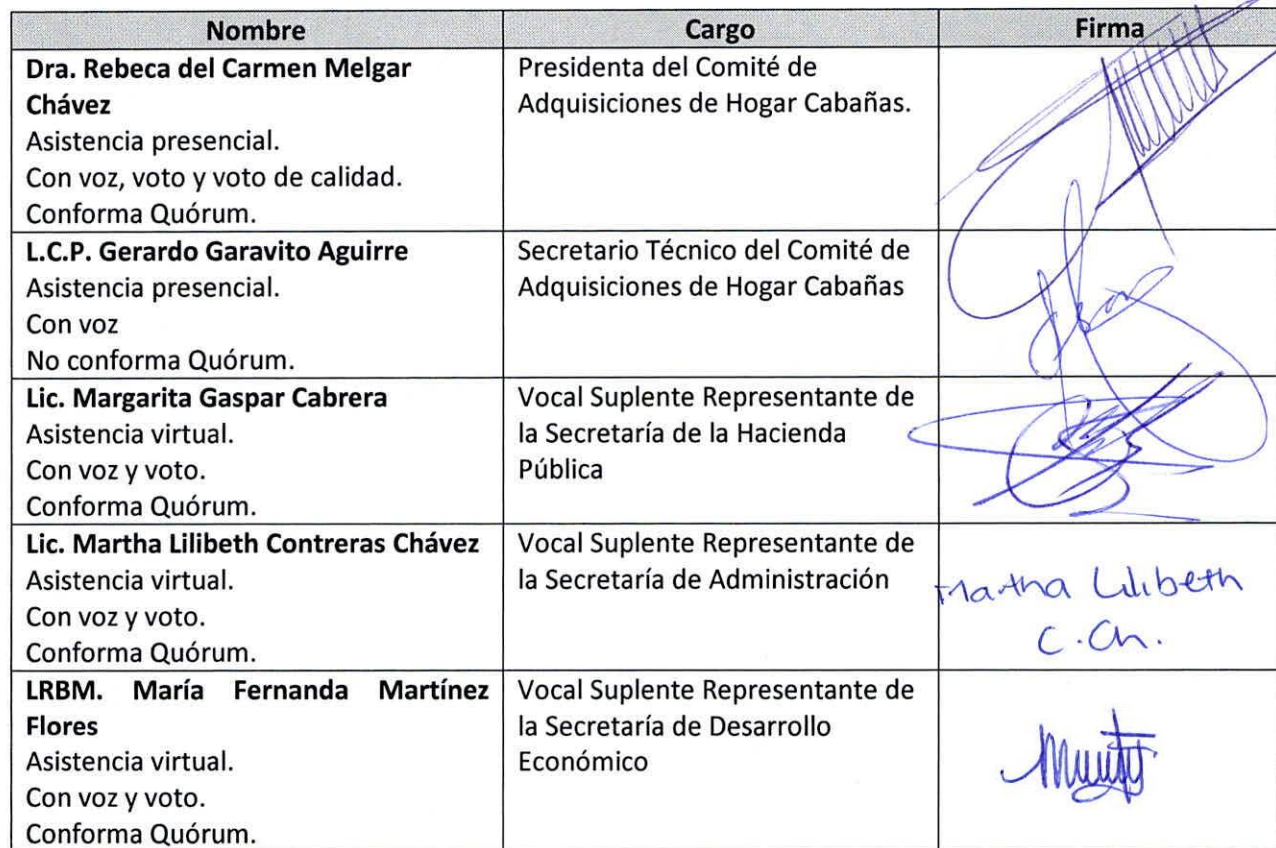 Nombre Cargo Firma
Dra. Rebeca del Carmen Melgar
Chávez
Asistencia presencial.
Con voz, voto y voto de calidad.
Conforma Quórum.
Presidenta del Comité de
Adquisiciones de Hogar Cabañas.
L.C.P. Gerardo Garavito Aguirre
Asistencia presencial.
Con voz
No conforma Quórum.
Secretario Técnico del Comité de
Adquisiciones de Hogar Cabañas
Lic. Margarita Gaspar Cabrera
Asistencia virtual.
Con voz y voto.
Conforma Quórum.
Vocal Suplente Representante de
la Secretaría de la Hacienda
Pública
Lic. Martha Lilibeth Contreras Chávez
Asistencia virtual.
Con voz y voto.
Conforma Quórum.
Vocal Suplente Representante de
la Secretaría de Administración
Martha Lilibeth
C.Ch.
LRBM. María Fernanda Martínez
Flores
Asistencia virtual.
Con voz y voto.
Conforma Quórum.
Vocal Suplente Representante de
la Secretaría de Desarrollo
Económico